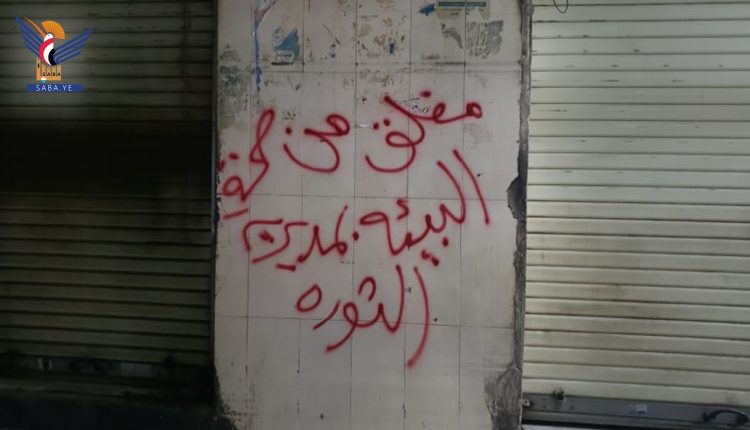 SABA
SABA.YE
مغلق من
البيئه بمديرية
الثوره